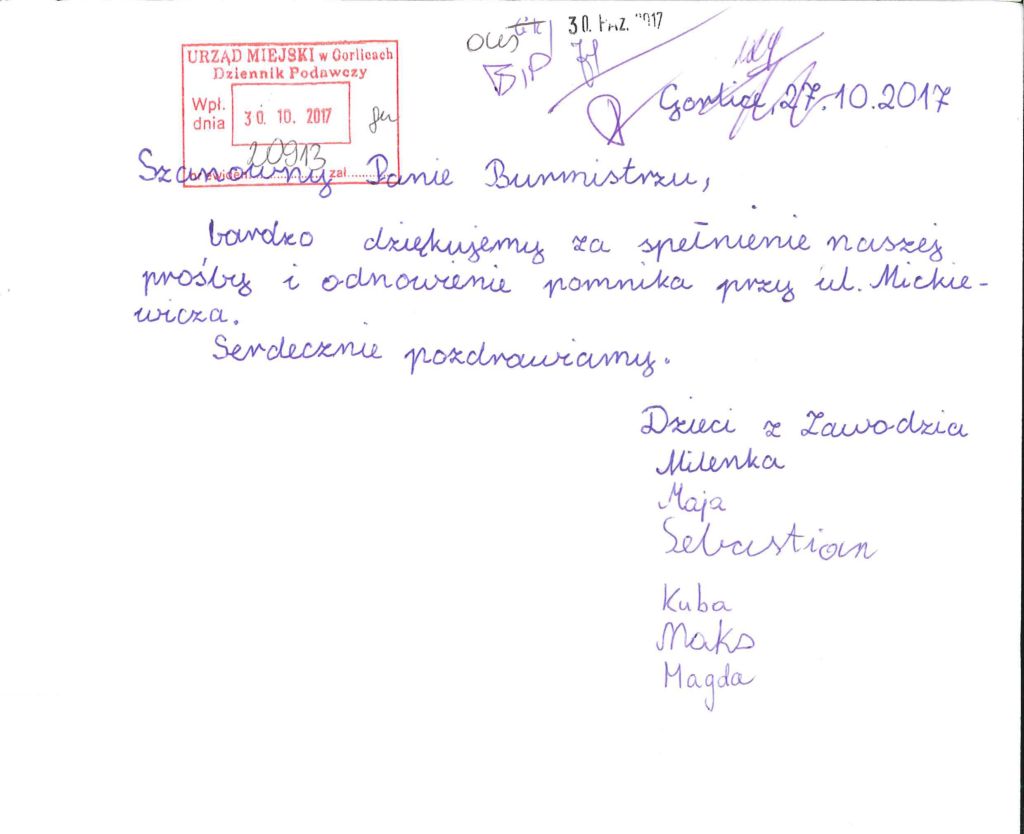 30. PAŹ. 2017
BIP
URZĄD MIEJSKI w Gorlicach
Dziennik Podawczy
Wpł.
dnia
30. 10. 2017
20913
zał.
Gorlice, 27.10.2017
Szanowny Panie Burmistrzu,
bardzo dziękujemy za spełnienie naszej
prośby i odnowienie pomnika przy ul. Mickie-
wicza.
Serdecznie pozdrawiamy.
Dzieci z Zawodzia
Milenka
Maja
Sebastian
Kuba
Maks
Magda